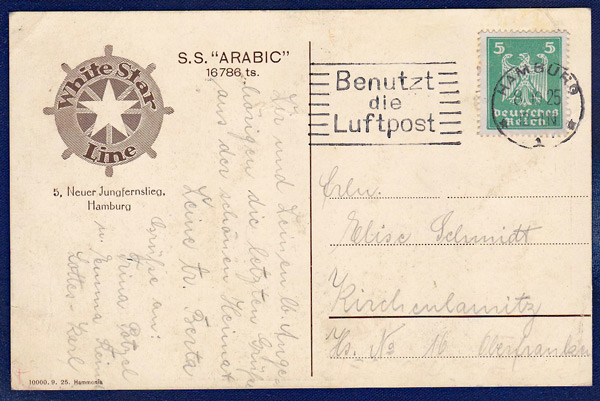 White Star
Line
5. Neuer Jungfernstieg.
Hamburg
S.S. "ARABIC"
16786 ts.
Dir und Deinen lb. Ange-
hörigen die letzten Grüße
aus der schönen Heimat
Deine tr. Berta
Grüße an:
u. Emma
10000. 9. 25. Hammonia
Benutzt
die
Luftpost
5 5
Deutsches
Reich
HAMBURG
25
1
Elise Schmidt
Kirchenlamitz
Hs. No 16 Oberfranken